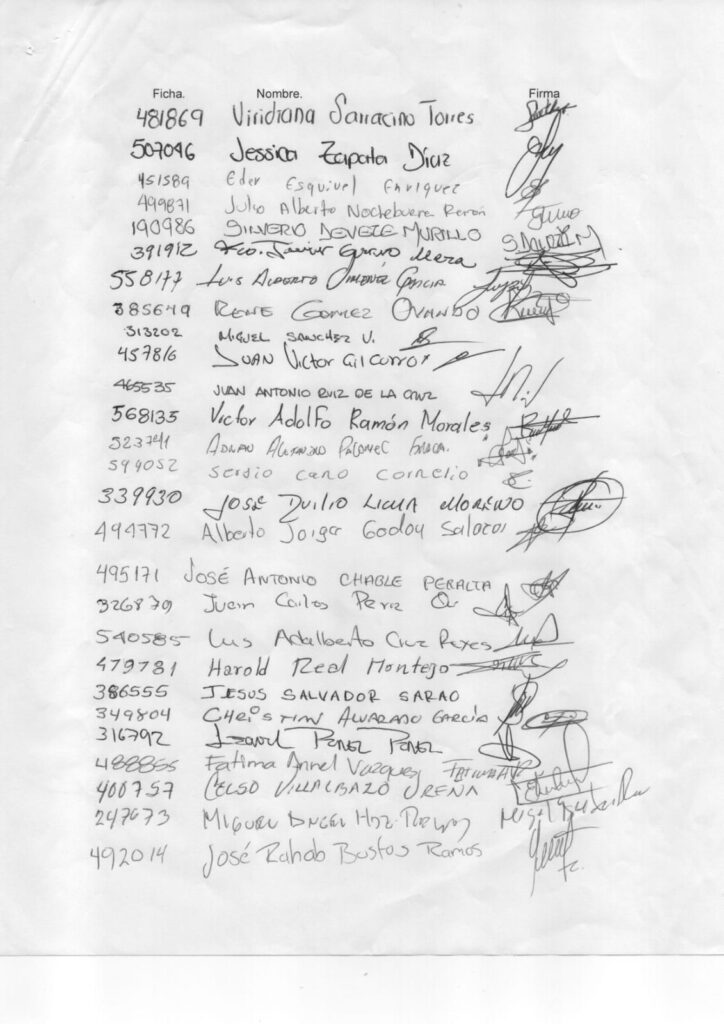 Ficha. Nombre. Firma
481869 Viridiana Sarracino Torres
507046 Jessica Zapata Díaz
451589 Eder Esquivel Enriquez
499871 Julio Alberto Nochebuena
190986 SILVERIO MURILLO
391912 Fco. Javier Mera
558177 Luis Alberto Jimenez Garcia
385649 RENE GOMEZ OVANDO
313202 MIGUEL SANCHEZ V.
457816 JUAN Victor Gil
465535 JUAN ANTONIO RUIZ DE LA CRUZ
568135 Victor Adolfo Ramón Morales
523741 ADRIAN
599052 sergio cano cornelio
339930 JOSÉ DUILIO MORENO
494772 Alberto Jorge Godoy
495171 JOSÉ ANTONIO CHABLE PERALTA
326879 Juan Carlos Perez
540585 Luis Adalberto Cruz Reyes
479781 Harold Real Montejo
386555 JESUS SALVADOR SARAO
349804 CHRISTIAN ALVARADO GARCÍA
316792 PEREZ PEREZ
488855 Fatima Annel Vazquez
400757 CELSO VILLALBAZO UREÑA
247673 MIGUEL ANGEL Hdz.
492014 José Rahab Bustos Ramos